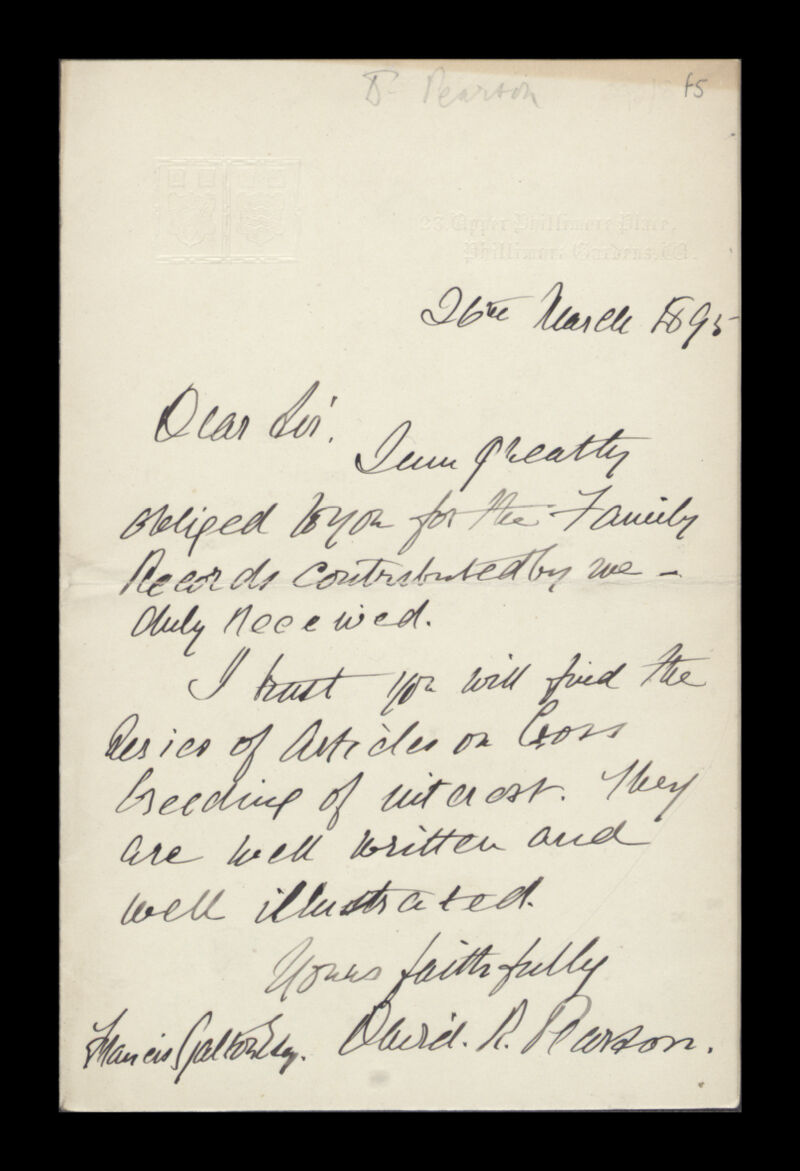 Dr Pearson
f5
23, Upper Phillimore Place,
Phillimore Gardens, W.
26th March 1895
Dear Sir.
I am greatly
obliged to you for the Family
Records contributed by me –
duly received.
I trust you will find the
Series of Articles on Cross
breeding of interest. They
are well written and
well illustrated.
Yours faithfully
David. R. Pearson.
Francis Galton Esq.